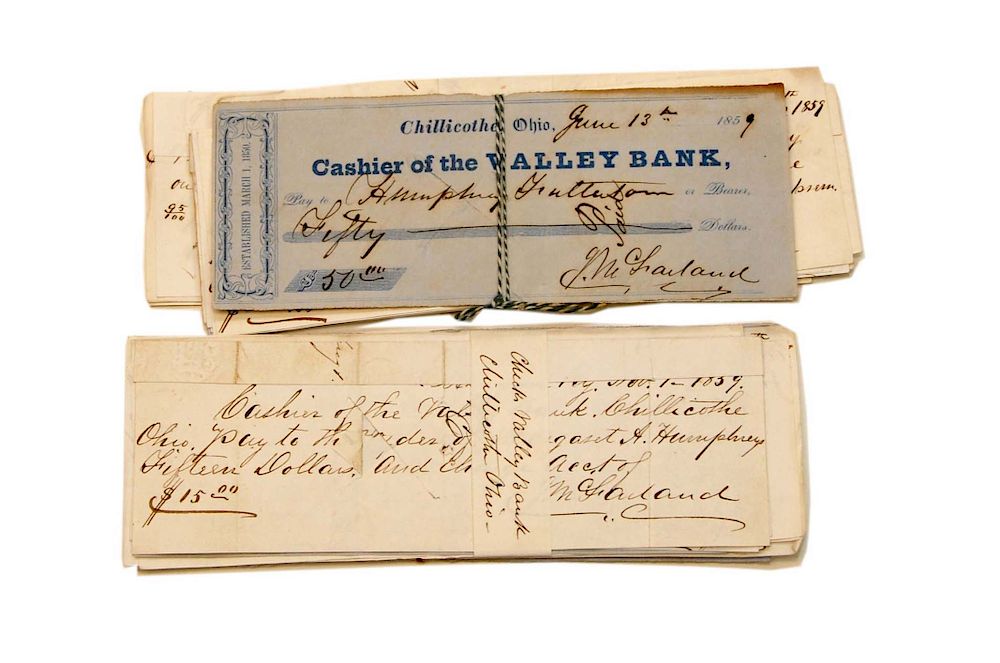 1859
95/100
Chillicothe, Ohio, June 13th 1859
ESTABLISHED MARCH 1, 1850.
Cashier of the VALLEY BANK,
Pay to Humphrey Fullerton or Bearer,
Fifty Dollars.
$50.00
J. McFarland
1859.
Cashier of the Va nk. Chillicothe
Ohio. Pay to th order garet A. Humphrey
Fifteen Dollars, and ch acct of
$15.00 McFarland
Checks Valley Bank
Chillicothe Ohio-